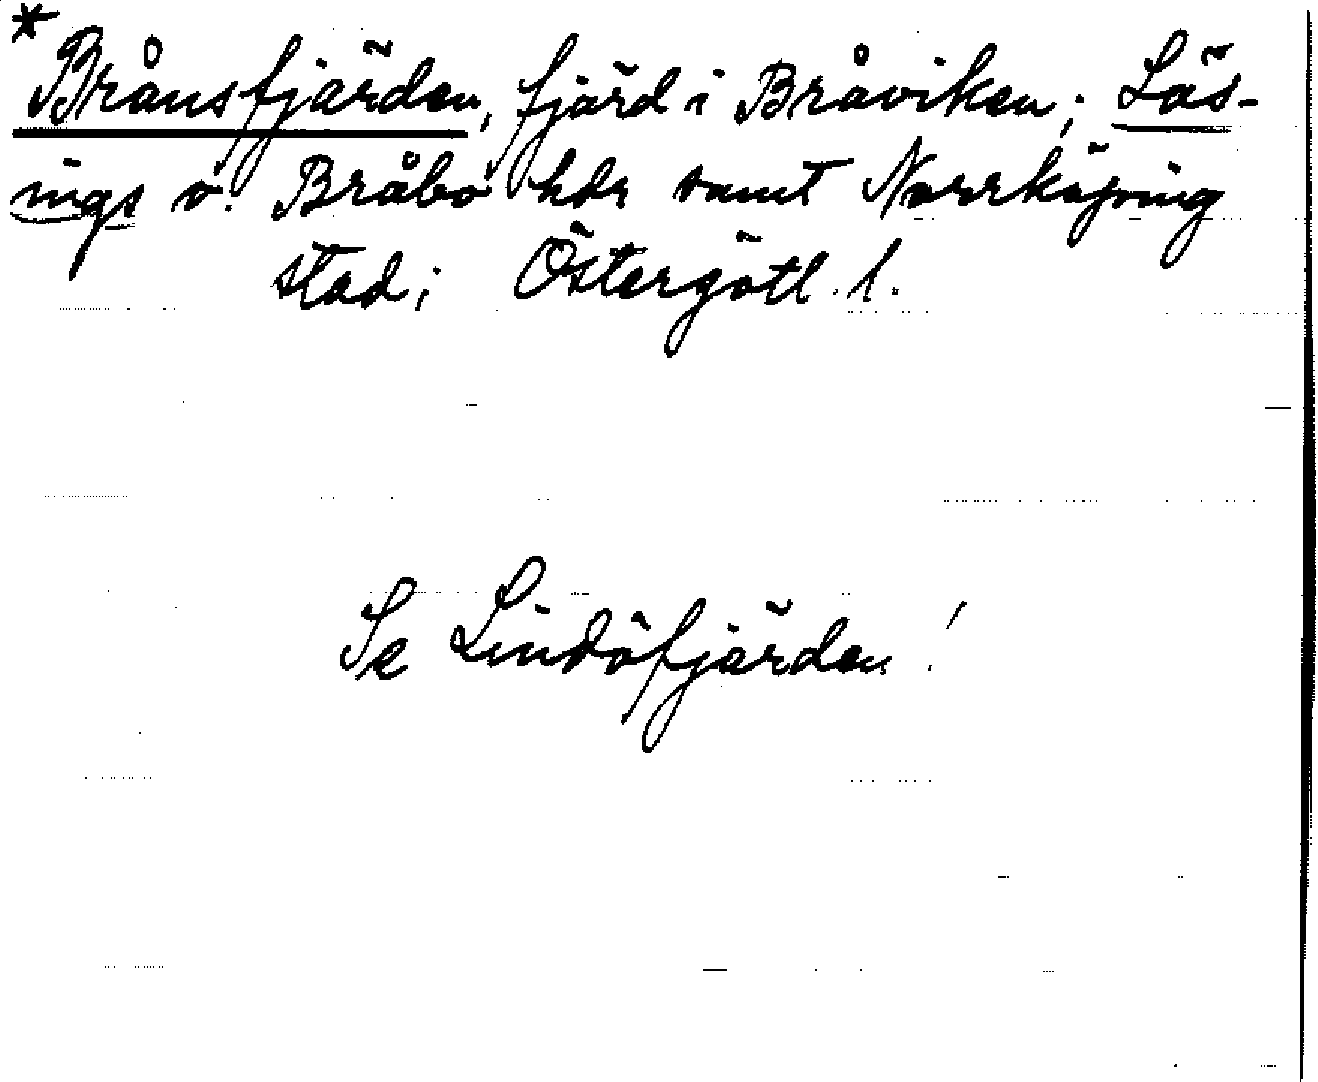 *Brånsfjärden, fjärd i Bråviken; Lös-
ings o. Bråbo hdr samt Norrköping
stad; Östergötl. l.
Se Lindöfjärden!